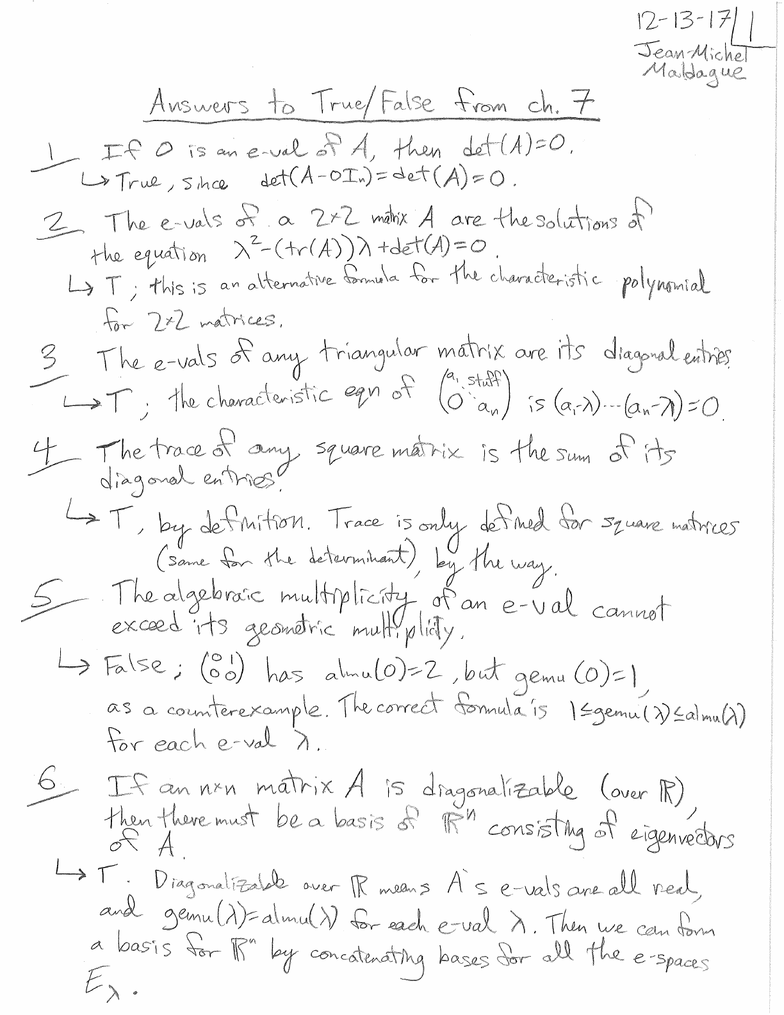 12-13-17 1
Jean-Michel
Maldague
Answers to True/False from ch. 7
1 If 0 is an e-val of A, then det(A)=0.
↳ True, since det(A-0Iₙ)=det(A)=0.
2 The e-vals of a 2×2 matrix A are the solutions of
the equation λ²-(tr(A))λ+det(A)=0.
↳ T; this is an alternative formula for the characteristic polynomial
for 2×2 matrices.
3 The e-vals of any triangular matrix are its diagonal entries.
↳ T; the characteristic eqn of (a₁ stuff
0 aₙ) is (a₁-λ)···(aₙ-λ)=0.
4 The trace of any square matrix is the sum of its
diagonal entries.
↳ T, by definition. Trace is only defined for square matrices
(same for the determinant), by the way.
5 The algebraic multiplicity of an e-val cannot
exceed its geometric multiplicity.
↳ False; (0 1
0 0) has almu(0)=2, but gemu(0)=1,
as a counterexample. The correct formula is 1≤gemu(λ)≤almu(λ)
for each e-val λ.
6 If an n×n matrix A is diagonalizable (over ℝ),
then there must be a basis of ℝⁿ consisting of eigenvectors
of A.
↳ T. Diagonalizable over ℝ means A's e-vals are all real,
and gemu(λ)=almu(λ) for each e-val λ. Then we can form
a basis for ℝⁿ by concatenating bases for all the e-spaces
E_λ.